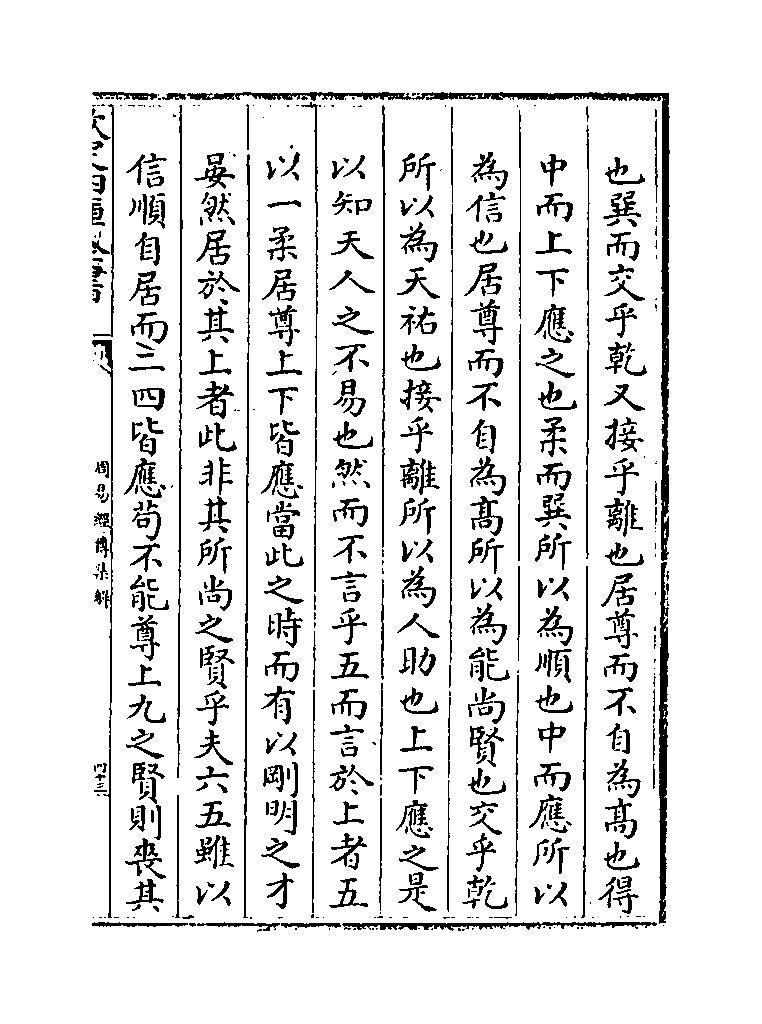 也巽而交乎乾又接乎離也居尊而不自為髙也得
中而上下應之也柔而巽所以為順也中而應所以
為信也居尊而不自為髙所以為能尚賢也交乎乾
所以為天祐也接乎離所以為人助也上下應之是
以知天人之不易也然而不言乎五而言於上者五
以一柔居尊上下皆應當此之時而有以剛明之才
晏然居於其上者此非其所尚之賢乎夫六五雖以
信順自居而三四皆應茍不能尊上九之賢則喪其
欽定四庫全書
周易經傳集解
四十三